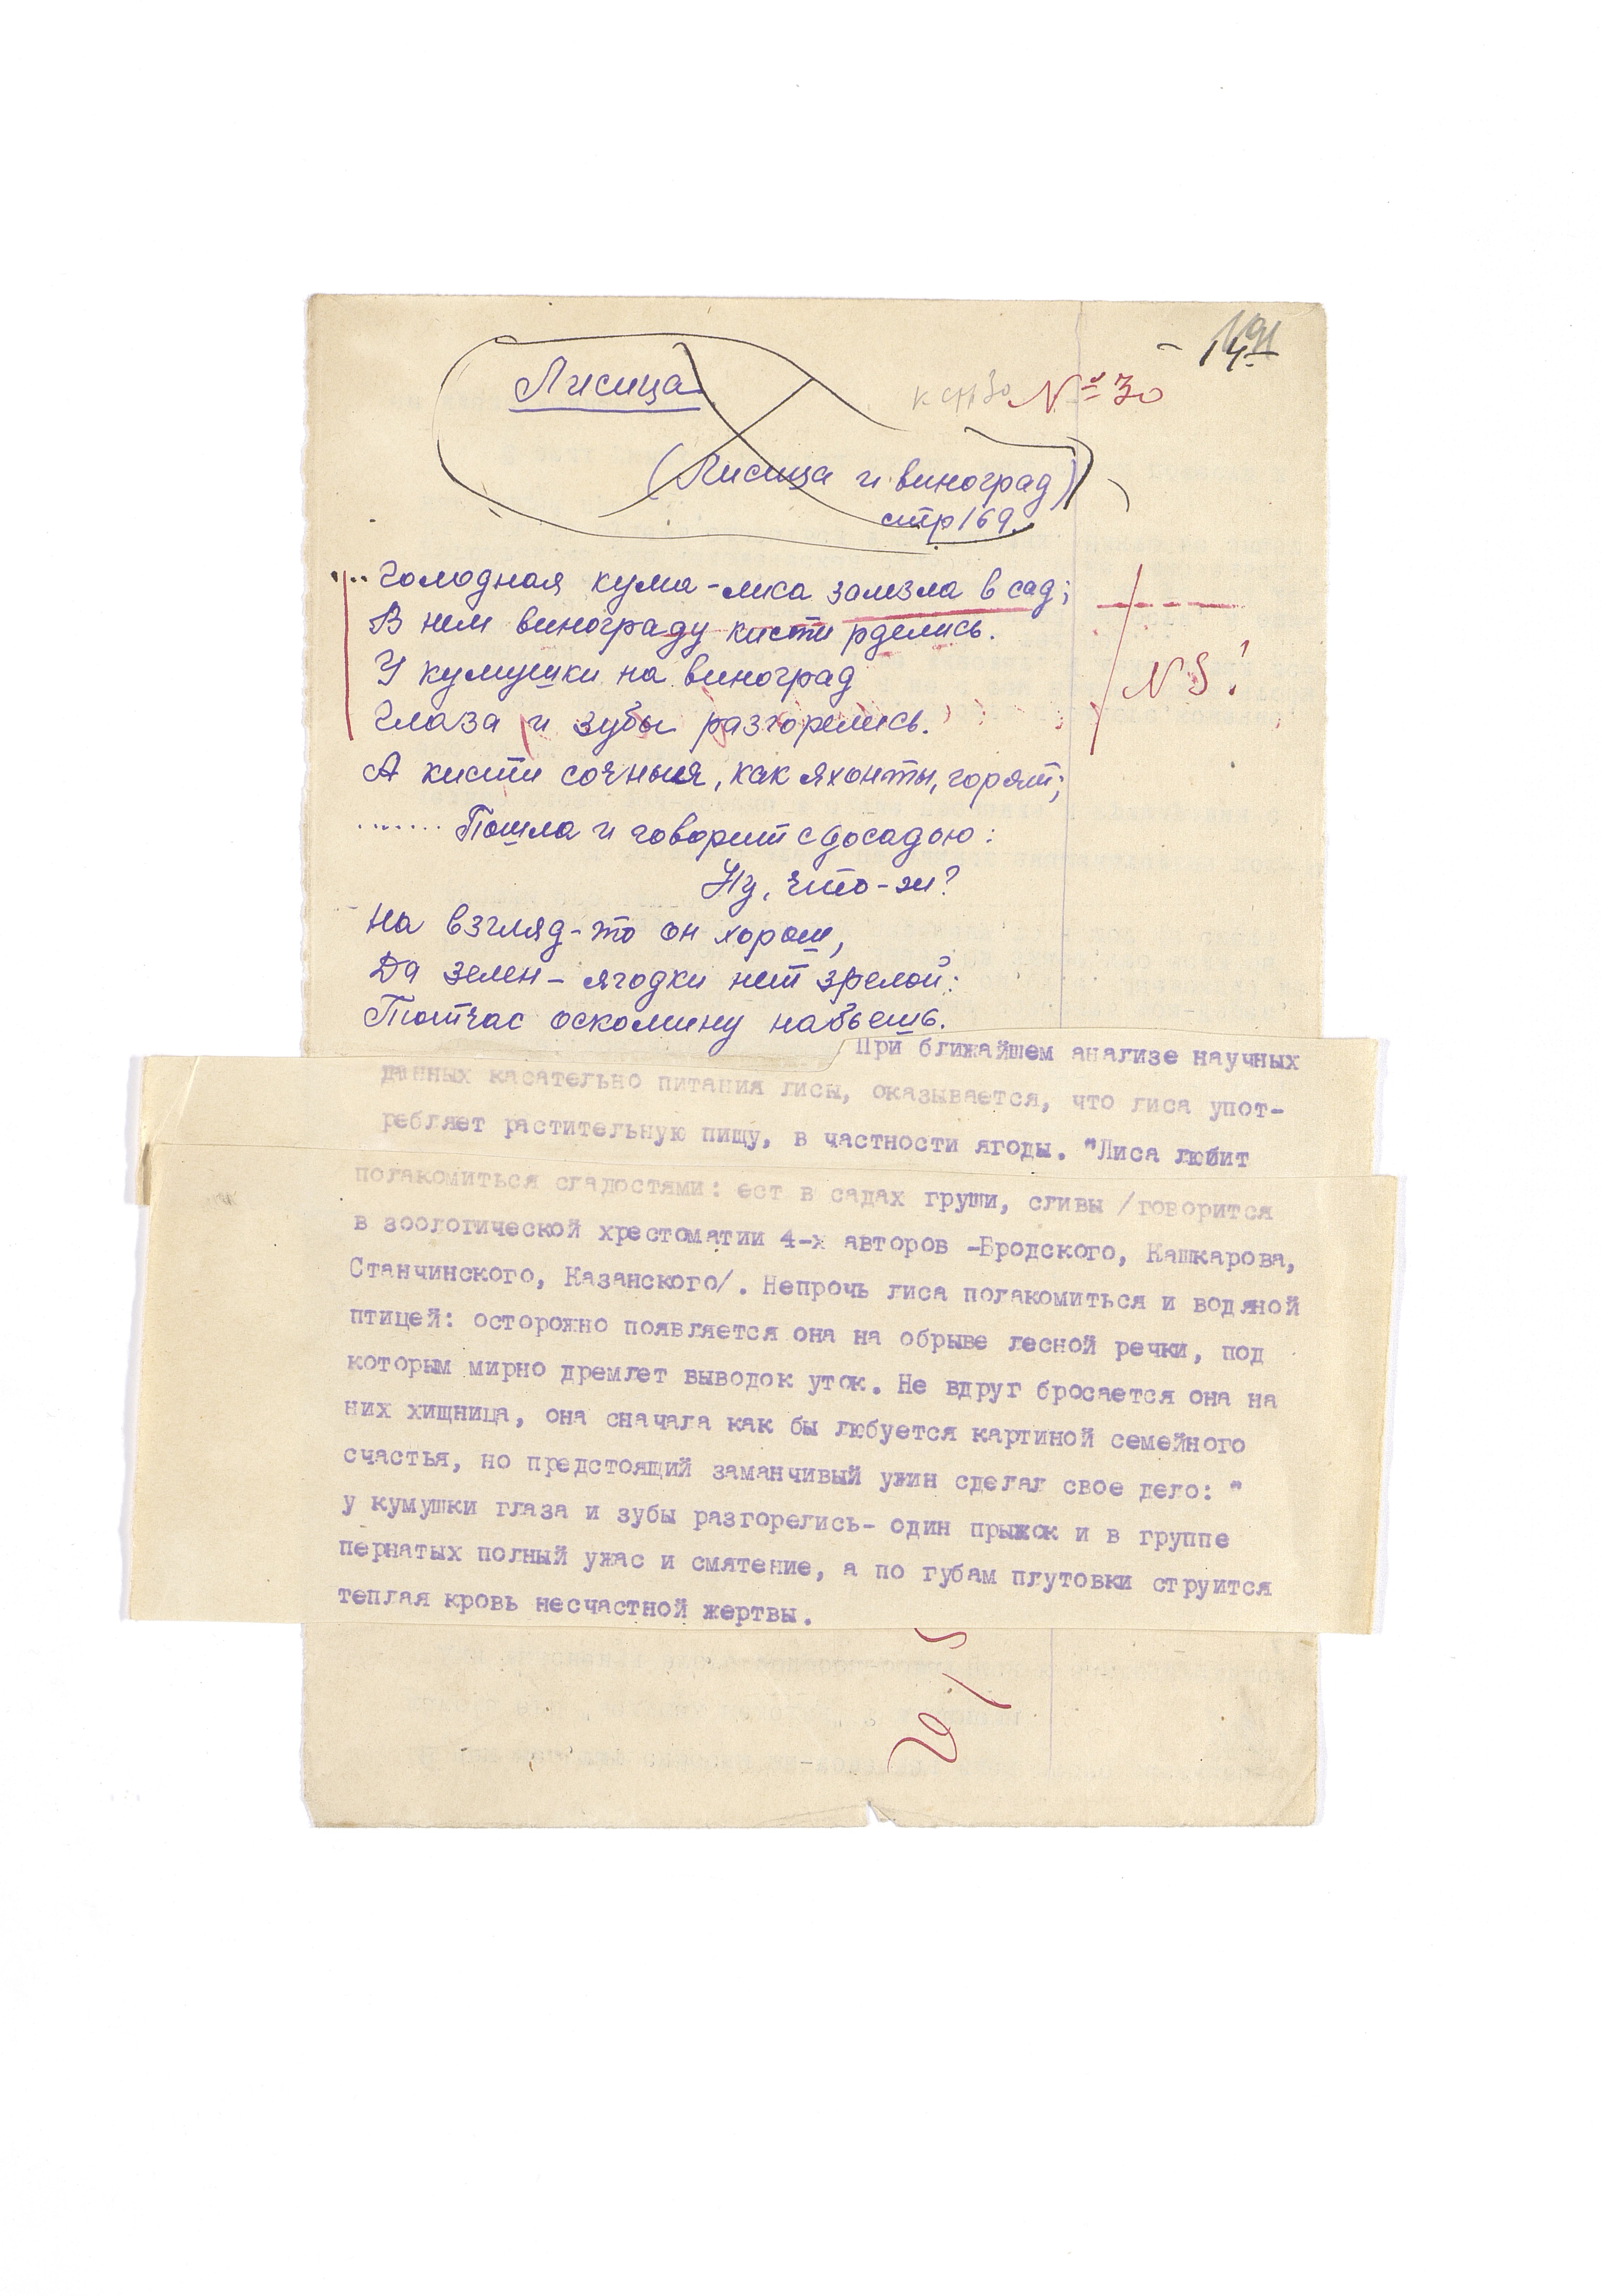 - 14 -
Лисица
№ 30
(Лисица и виноград)
стр 169.
... Голодная кума-лиса залезла в сад;
В нем винограду кисти рделись.
У кумушки на виноград
Глаза и зубы разгорелись.
N 3!
А кисти сочныя, как яхонты, горят;
....... Пошла и говорит с досадою:
Ну, что-ж?
На взгляд-то он хорош,
Да зелен - ягодки нет зрелой:
Тотчас оскомину набьешь.
При ближайшем анализе научных
данных касательно питания лисы, оказывается, что лиса упот-
ребляет растительную пищу, в частности ягоды. "Лиса любит
полакомиться сладостями: ест в садах груши, сливы /говорится
в зоологической хрестоматии 4-х авторов -Бродского, Кашкарова,
Станчинского, Казанского/. Непрочь лиса полакомиться и водяной
птицей: осторожно появляется она на обрыве лесной речки, под
которым мирно дремлет выводок уток. Не вдруг бросается она на
них хищница, она сначала как бы любуется картиной семейного
счастья, но предстоящий заманчивый ужин сделал свое дело: "
у кумушки глаза и зубы разгорелись- один прыжок и в группе
пернатых полный ужас и смятение, а по губам плутовки струится
теплая кровь несчастной жертвы.